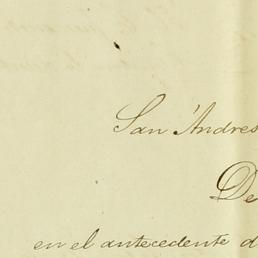 San Andres
De
en el antecedente d